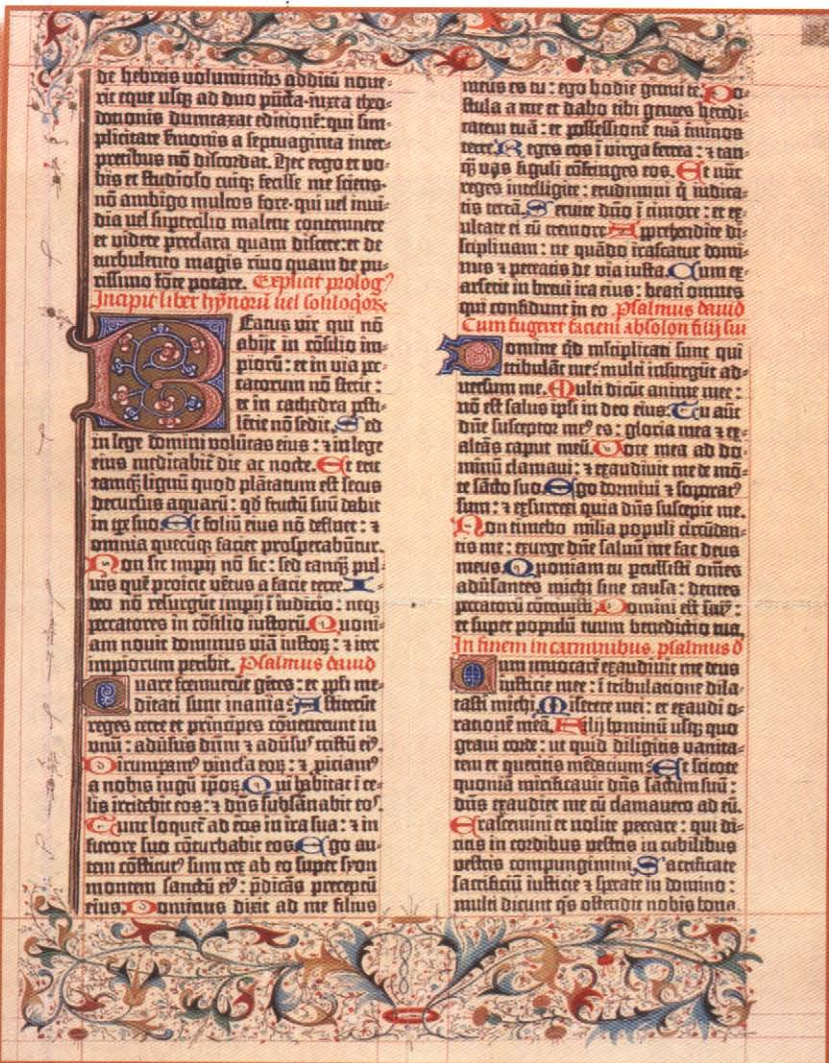 de hebreis voluminibꝫ additū nove⸗
rit eque usqꝫ ad duo pūcta·iuxta theo⸗
dotionis dumtaxat editionē: qui sim⸗
plicitate s̄monis a septuaginta inter⸗
pretibus nō discordat. Hec ergo et vo⸗
bis et studioso cuiqꝫ fecisse me sciens·
nō ambigo multos fore·qui vel invi⸗
dia vel supercilio malent contemnere
et videre preclara quam discere:et de
turbulento magis rivo quam de pu⸗
rissimo fōte potare. Explicit prologꝰ
Incipit liber hȳnorū vel soliloqioꝝ
Beatus vir qui nō
abijt in cōsilio im⸗
piorū: et in via pec⸗
catorum nō stetit:
et in cathedra pesti⸗
lētie nō sedit. Sed
in lege domini volūtas eius: ⁊ in lege
eius meditabit̄ die ac nocte. Et erit
tamqꝫ lignū quod plātatum est secus
decursus aquarū: qd̄ fructū suū dabit
in tꝑe suo. Et foliū eius nō defluet: ⁊
omnia quecūqꝫ faciet prosperabūtur.
Non sic impij nō sic: sed tanqꝫ pul⸗
vis quē proicit vētus a facie terre. I⸗
deo nō resurgūt impij ī iudicio: neqꝫ
peccatores in cōsilio iustorū. Quoni⸗
am novit dominus viā iustoꝝ: ⁊ iter
impiorum peribit. Psalmus david
Quare fremuerūt gētes: et ppl̄i me⸗
ditati sunt inania? Astiterūt
reges terre et principes cōvenerunt in
unū: adv̄sus dn̄m ⁊ adv̄sus cristū eiꝰ.
Dirumpamꝰ vincula eoꝝ: ⁊ ꝓiciamꝰ
a nobis iugū ipoꝝ. Qui habitat ī ce⸗
lis irridebit eos: ⁊ dn̄s subsānabit eos.
Tunc loquet̄ ad eos in ira sua: ⁊ in
furore suo cōturbabit eos. Ego au⸗
tem cōstitutꝰ sum rex ab eo super syon
montem sanctū eiꝰ: p̄dicās preceptū
eius. Dominus dixit ad me filius
meus es tu: ego hodie genui te. Po⸗
stula a me et dabo tibi gentes heredi⸗
tatem tuā: et possessionē tuā t̄minos
terre. Reges eos ī virga ferrea: ⁊ tan⸗
qꝫ vas figuli cōfringes eos. Et nūc
reges intelligite: erudimini qͥ iudica⸗
tis terrā. Servite dn̄o ī timore: et ex⸗
ultate ei cū tremore. Apprehendite di⸗
sciplinam: ne quādo irascatur domi⸗
nus ⁊ pereatis de via iusta. Cum ex⸗
arserit in brevi ira eius: beati omnes
qui confidunt in eo. Psalmus david
Cum fugeret a facie absolon filij sui
Domine qd̄ multiplicati sunt qui
tribulāt me? multi insurgūt ad⸗
versum me. Multi dicūt anime mee:
nō est salus ipsi in deo eius. Tu aūt
dn̄e susceptor meꝰ es: gloria mea ⁊ ex⸗
altās caput meū. Voce mea ad do⸗
minū clamavi: ⁊ exaudivit me de mō⸗
te sācto suo. Ego dormivi ⁊ soporatꝰ
sum: ⁊ exsurrexi quia dn̄s suscepit me.
Non timebo milia populi circūdan⸗
tis me: exurge dn̄e salvū me fac deus
meus. Quoniam tu percussisti om̄es
adv̄santes michi sine causa: dentes
peccatorū cōtrivisti. Domini est salꝰ:
et super populū tuum benedictio tua.
In finem in carminibus. psalmus d̄
Cum invocarē exaudivit me deus
iusticie mee: ī tribulatione dila⸗
tasti michi. Miserere mei: et exaudi o⸗
rationē meā. Filij hominū usqꝫ quo
gravi corde: ut quid diligitis vanita⸗
tem et queritis mēdacium? Et scitote
quoniā mirificavit dn̄s sāctum suū:
dn̄s exaudiet me cū clamavero ad eū.
Irascemini et nolite peccare: qui di⸗
citis in cordibus vestris in cubilibus
vestris compungimini. Sacrificate
sacrificiū iusticie ⁊ sperate in domino:
multi dicunt qͥs ostendit nobis bona.